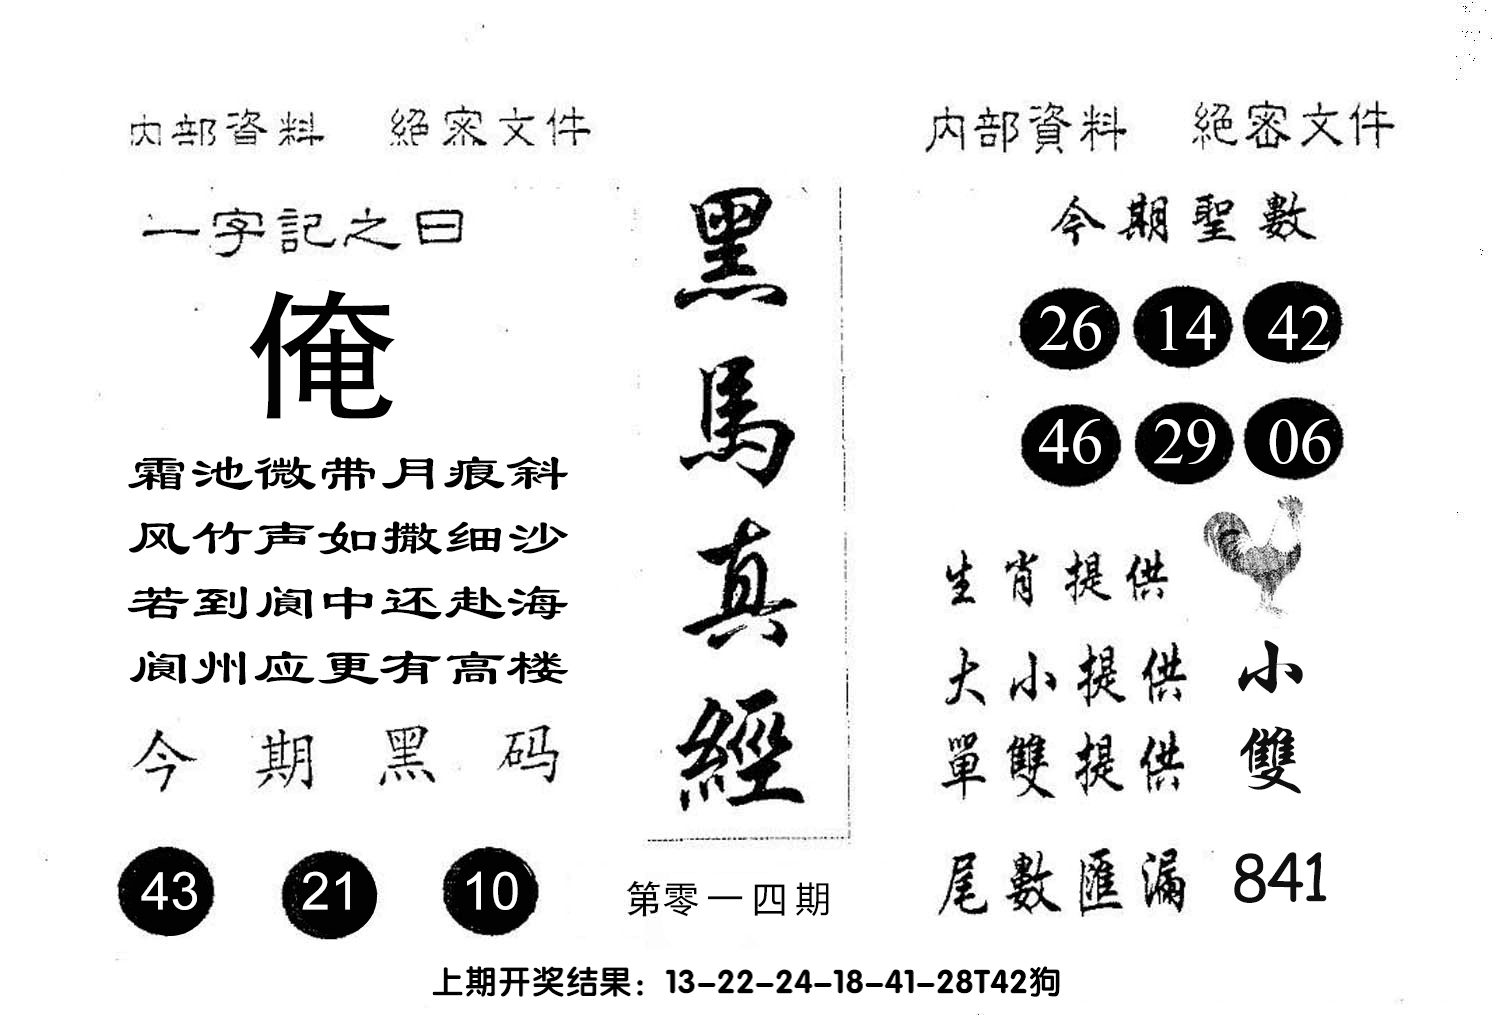 內部資料 絕密文件
一字記之曰
俺
霜池微带月痕斜
风竹声如撒细沙
若到阆中还赴海
阆州应更有高楼
今期黑码
43 21 10
黑馬真經
第零一四期
內部資料 絕密文件
今期聖數
26 14 42
46 29 06
生肖提供
大小提供 小
單雙提供 雙
尾數匯漏 841
上期开奖结果：13-22-24-18-41-28T42狗